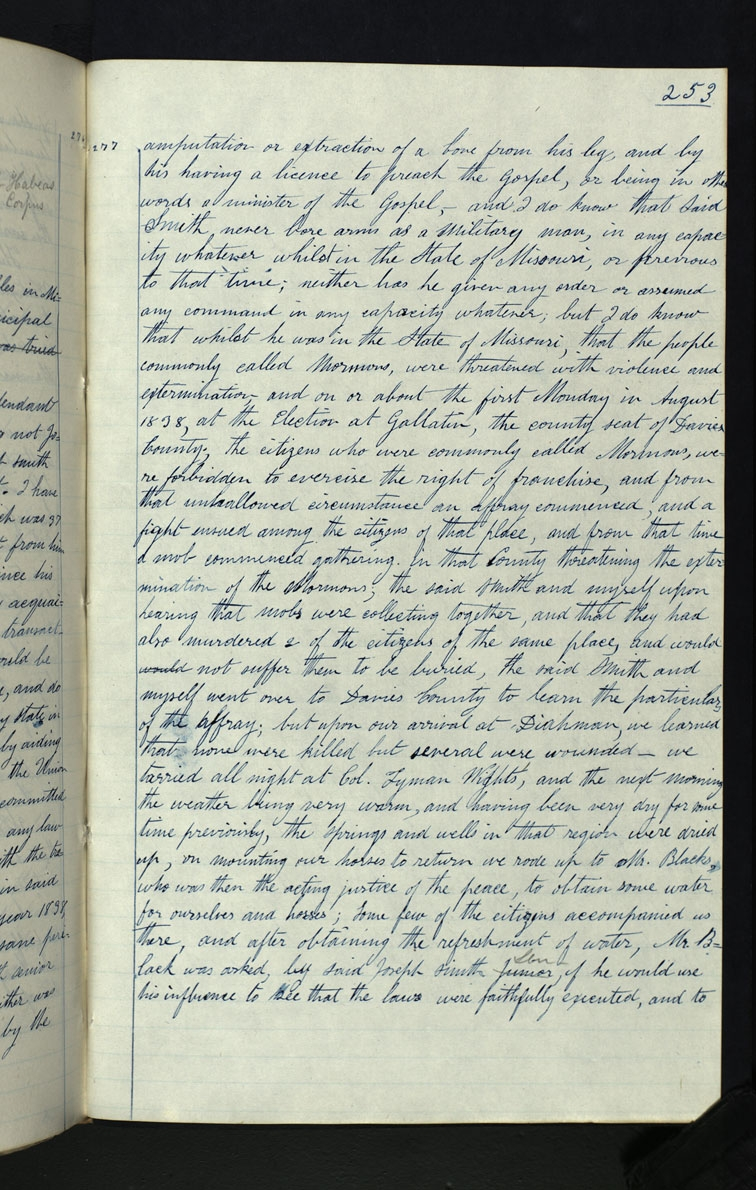 253
276
277
amputation or extraction of a bone from his leg, and by
his having a licence to preach the Gospel, or being in other
words a minister of the Gospel,- and I do know that said
Smith, never bore arms as a military man, in any capac-
ity whatever whilst in the State of Missouri, or previous
to that time; neither has he given any order or assumed
any command in any capacity whatever; but I do know
that whilst he was in the State of Missouri, that the people
commonly called Mormons, were threatened with violence and
extermination, and on or about the first Monday in August
1838, at the Election at Gallatin, the county seat of Davies
County, the citizens who were commonly called Mormons, we-
re forbidden to exercise the right of franchise, and from
that unhallowed circumstance an affray commenced, and a
fight ensued among the citizens of that place, and from that time
a mob commenced gathering in that County threatening the exter
mination of the Mormons; the said Smith and myself upon
hearing that mobs were collecting together, and that they had
also murdered 2 of the citizens of the same place, and would
would not suffer them to be buried, the said Smith and
myself went over to Davies County to learn the particulars
of the affray; but upon our arrival at Diahman, we learned
that none were killed but several were wounded— we
tarried all night at Col. Lyman Wights, and the next morning
the weather being very warm, and having been very dry for some
time previously, the springs and wells in that region were dried
up, on mounting our horses to return we rode up to Mr. Blacks,
who was then the acting justice of the peace, to obtain some water
for ourselves and horses; some few of the citizens accompanied us
there, and after obtaining the refreshment of water, Mr. B=
lack was asked, by said Joseph Smith junior, if he would use
Sen
his influence to see that the laws were faithfully executed, and to
Habeas
Corpus
les in Mi=
icipal
was tried
fendant
not Jo=
smith
I have
ch was 37
from him
ince his
acquai=
transact
ould be
, and do
state in
by aiding
the Union
committed
any law
ith the
in said
year 1838,
same
junior
ither was
by the